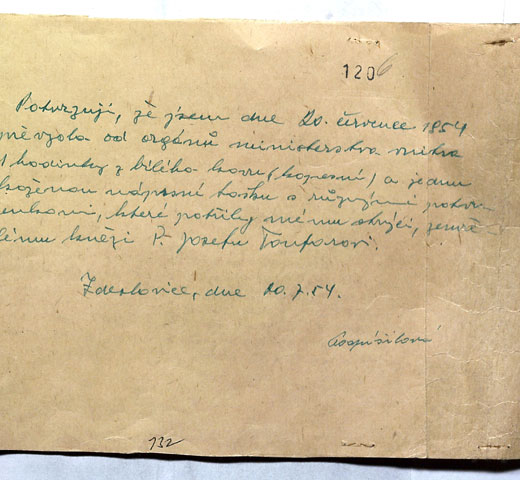 1206
Potvrzuji, že jsem dne 20. července 1954
vzala od orgánů ministerstva vnitra
1 hodinky z bílého kovu (kapesní) a jednu
koženou náprsní tašku s různými potvr-
zenkami, které patřily mému strýci, zemře-
lému knězi P. Josefu Toufarovi.
Zdeslavice, dne 20.7.54.
Pospíšilová
132